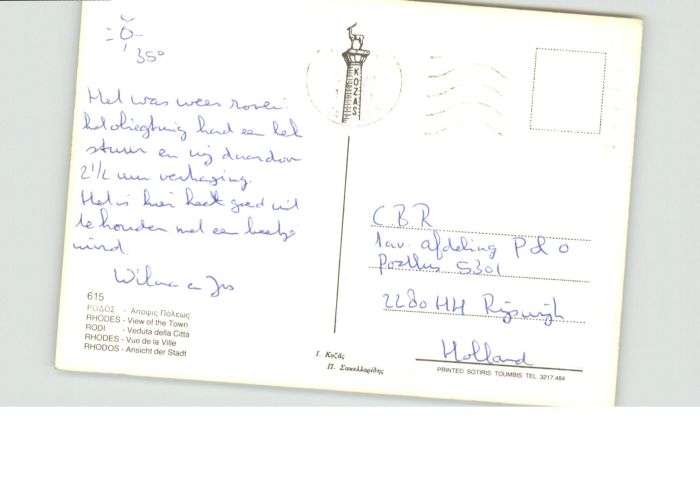 35°
Het was weer raak
het vliegtuig had een lek
stuur en wij daardoor
2 1/2 uur vertraging.
Het is hier heet goed uit
te houden met een beetje
wind.
Wilma en Jos
615
ΡΟΔΟΣ - Άποψις Πόλεως
RHODES - View of the Town
RODI - Veduta della Citta
RHODES - Vue de la Ville
RHODOS - Ansicht der Stadt
KOZAS
Ι. Κοζάς
Π. Σακελλαρίδης
CBR
t.av. afdeling P & O
Postbus 5301
2280 HH Rijswijk
Holland
PRINTED SOTIRIS TOUMBIS TEL 3217.464